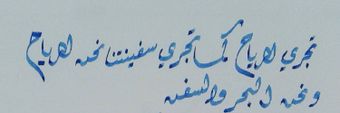 تجري الرياح كما تجري سفينتنا نحن الرياح
ونحن البحر والسفن